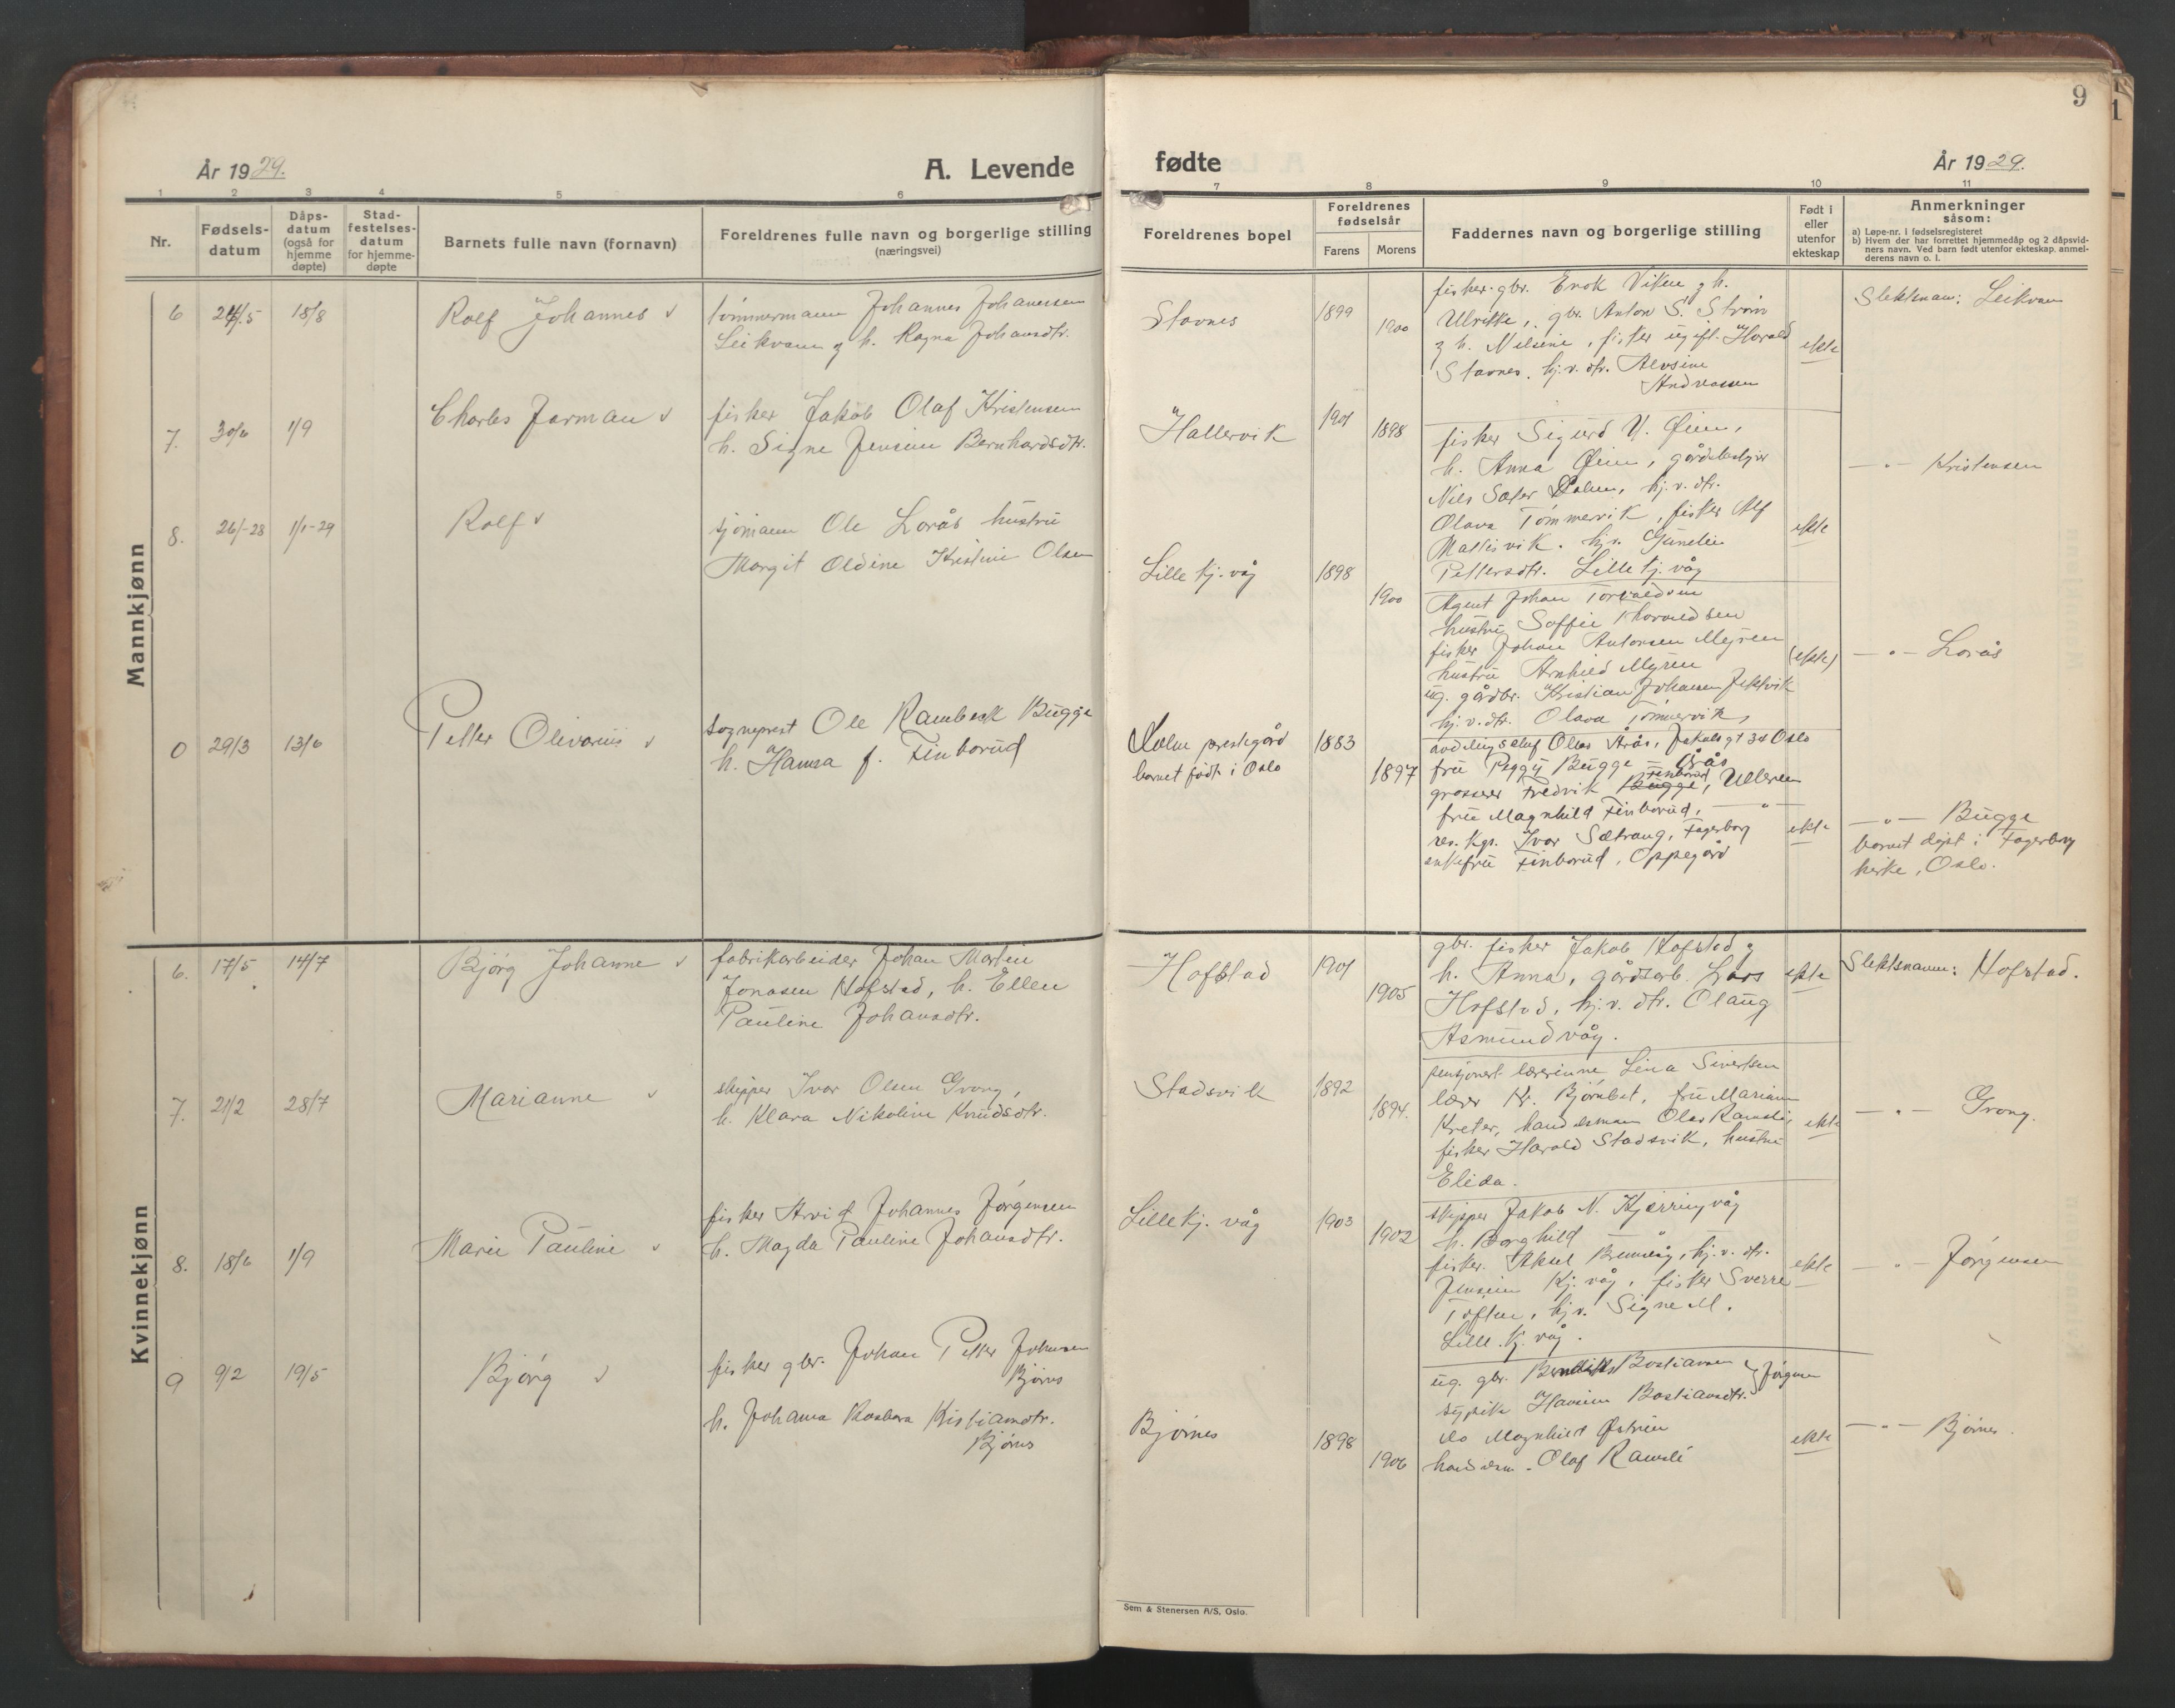 9
År 1929.
A. Levende
fødte
År 1929.
1
2
3
4
5
6
7
8
9
10
11
Nr.
Fødsels-
datum
Dåps-
datum
(også for
hjemme
døpte)
Stad-
festelses-
datum
for hjemme-
døpte
Barnets fulle navn (fornavn)
Foreldrenes fulle navn og borgerlige stilling
(næringsvei)
Foreldrenes bopel
Foreldrenes
fødselsår
Farens
Morens
Faddernes navn og borgerlige stilling
Født i
eller
utenfor
ekteskap
Anmerkninger
såsom:
a) Løpe-nr. i fødselsregisteret
b) Hvem der har forrettet hjemmedåp og 2 dåpsvid-
ners navn. Ved barn født utenfor ekteskap, anmel-
derens navn o. l.
Mannkjønn
6 24/5 18/8 Rolf Johannes v
tømmermann Johannes Johansen
Leikvam og h. Ragna Johansdtr.
Stavnes 1899 1900
fisker-gbr. Enok Viken og h.
Ulrikke, gbr. Anton S. Strøm
og h. Nilsine, fisker ugift. Harald
Stavnes, hj.v. dtr.
Andreassen
ekte
Slektsnavn: Leikvam
7. 30/6 1/9 Charles Jarman v
fisker Jakob Olaf Kristensen
h. Signe Jensine Bernhardsdtr.
Hallervik 1901 1898
fisker Sigurd N. Øien,
h. Anna Øien, gårdsbestyrer
Nils Sæter Dalen, hj.v. dtr.
Olava Tømmervik, fisker Alf
Mattisvik. hj.v.
Pettersdtr. Lille kj.våg
ekte
— " — Kristensen
8. 26/-28 1/1-29 Rolf v
sjømann Ole Lorås hustru
Margit Oldine Kristine Olsen
Lille kj.våg 1898 1900
Agent Johan Torvaldsen
hustru Soffie Thorvaldsen
fisker Johan Antonsen Myren
hustru Arnhild Myren
ug. gårdbr. Kristian Johansen Jektvik
hj.v. dtr. Olava Tømmervik,
(ekte)
— " — Lorås
0 29/3 13/6 Petter Olivarius v
sogneprest Ole Rambeck Bugge
h. Hanna f. Finborud
prestegård
barnet født i Oslo
1883 1897
avdelingschef Olav Årås, Jakobs gt 34 Oslo
fru Peggy Bugge = Årås
grosserer Fredrik Bugge Finborud, Ullern
fru Magnhild Finborud, — " —
res. kap. Ivar Sætrang, Fagerborg
enkefru Finborud, Oppegård
ekte
— " — Bugge
barnet døpt i Fagerborg
kirke, Oslo.
Kvinnekjønn
6. 17/5 14/7 Bjørg Johanne v
fabrikarbeider Johan Martin
Jonasen Hofstad, h. Ellen
Pauline Johansdtr.
Hofstad 1901 1905
gbr. fisker Jakob Hofstad og
h. Anna, gårdsarb. Lars
Hofstad, hj.v. dtr. Olaug
Asmundvåg.
ekte
Slektsnavn: Hofstad.
7. 21/2 28/7 Marianne v
skipper Ivar Olsen Grong,
h. Klara Nikoline Knudsdtr.
Stadsvik 1892 1894.
pensjonert lærerinne Lina Sivertsen
lærer Kr. Bjørnbet, fru Marianne
Kreter, handelsmann Olav Ramslie,
fisker Harald Stadsvik, hustru
Elida.
ekte
— " — Grong.
8. 18/6 1/9 Marie Pauline v
fisker Arvid Johannes Jørgensen
h. Magda Pauline Johansdtr.
Lille kj. våg 1903 1902
skipper Jakob N. Kjerringvåg
h. Borghild — " —
fisker Aksel Bremvåg, hj.v. dtr.
Jensine Kj.våg, fisker Sverre
Toften, hj.v. Signe M.
Lille kj våg.
ekte
— " — Jørgensen
9 9/2 19/5 Bjørg v
fisker gbr. Johan Petter Johansen
Bjørnes
h. Johanna Barbara Kristiansdtr.
Bjørnes
Bjørnes 1898 1906
ug. gbr. Bendikt Bastiansen
sypike Hansine Bastiansdtr.
do Magnhild Østrem
handelsm. Olaf Ramsli
ekte
— " — Bjørnes.
Sem & Stenersen A/S, Oslo.